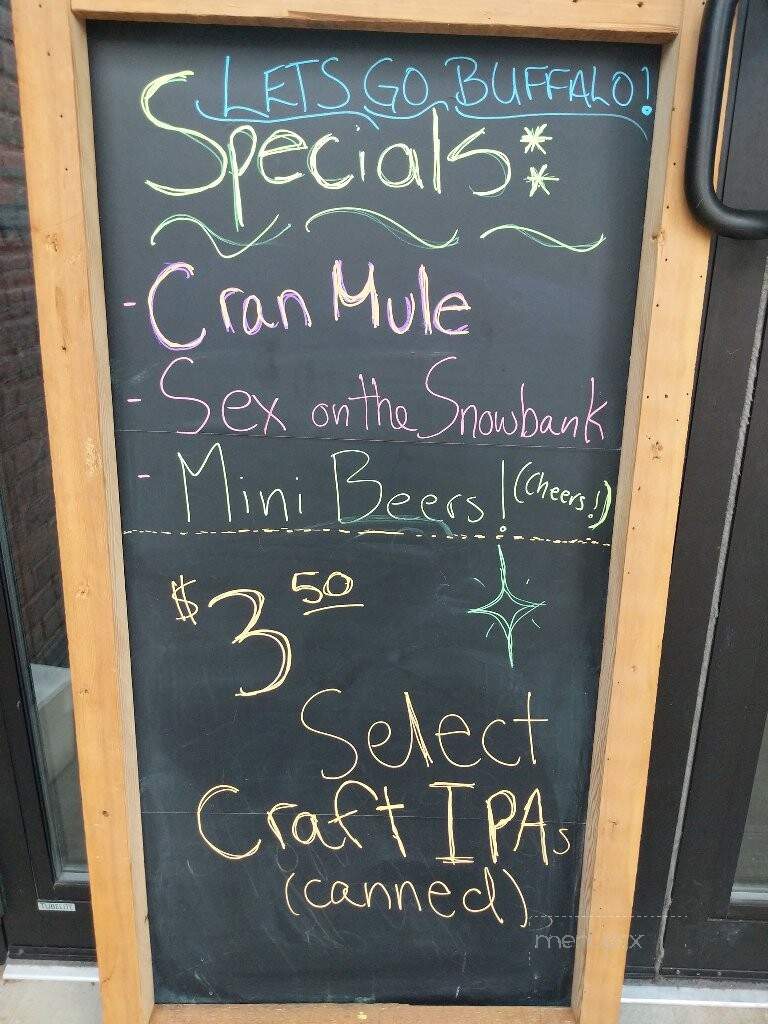 LETS GO BUFFALO!
Specials:
- Cran Mule
- Sex on the Snowbank
- Mini Beers! (Cheers!)
$3 50
Select
Craft IPAs
(canned)
TUBELITE